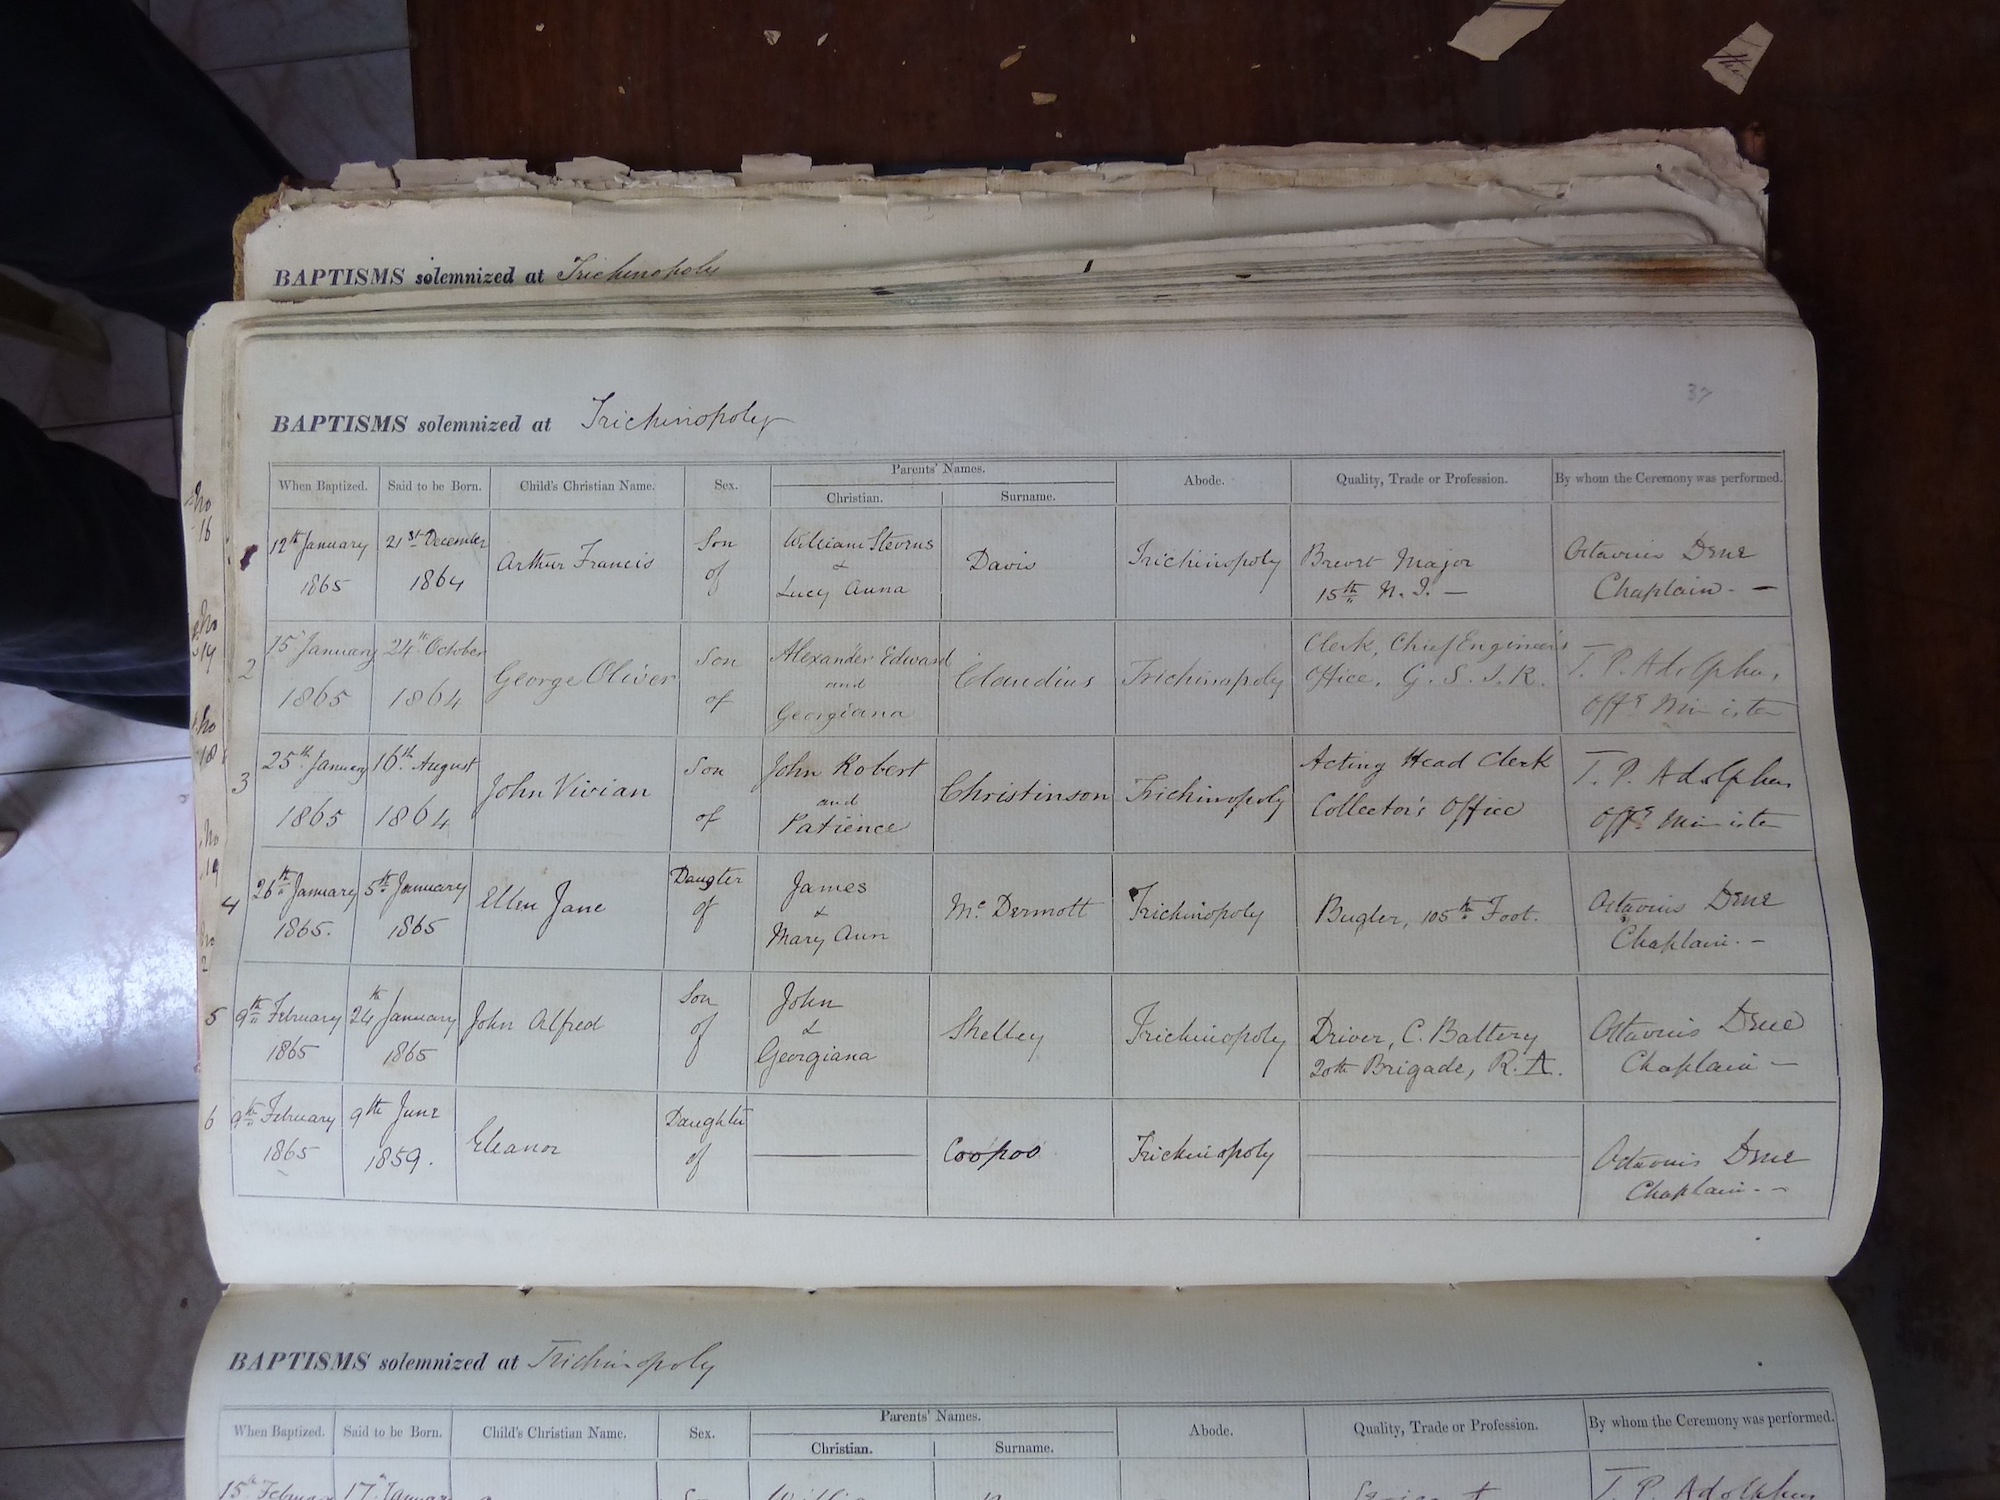 BAPTISMS solemnized at Trichinopoly
BAPTISMS solemnized at Trichinopoly
37
When Baptized. Said to be Born. Child's Christian Name. Sex. Parents' Names. Abode. Quality, Trade or Profession. By whom the Ceremony was performed.
Christian. Surname.
No
16
12th January 1865
21st December 1864
Arthur Francis
Son of
William Stevens
&
Lucy Anna
Davis
Trichinopoly
Brevt Major
15th N. I. —
Octavius Dene
Chaplain. —
No
14
2
15th January 1865
24th October 1864
George Oliver
Son of
Alexander Edward
and
Georgiana
Claudius
Trichinopoly
Clerk, Chief Engineer's
Office, G. S. I. R.
T. P. Adolphus,
Offg Minister
No
18
3
25th January 1865
16th August 1864
John Vivian
Son of
John Robert
and
Patience
Christinson
Trichinopoly
Acting Head Clerk
Collector's Office
T. P. Adolphus
Offg Minister
No
19
4
26th January 1865.
5th January 1865
Ellen Jane
Daugter of
James
&
Mary Ann
Mc Dermott
Trichinopoly
Bugler, 105th Foot.
Octavius Dene
Chaplain. —
No
2
5
9th February 1865
24th January 1865
John Alfred
Son of
John
&
Georgiana
Shelley
Trichinopoly
Driver, C. Battery
20th Brigade, R. A.
Octavius Dene
Chaplain —
6
9th February 1865
9th June 1859.
Eleanor
Daughter of
Coopoo
Trichinopoly
Octavius Dene
Chaplain. —
BAPTISMS solemnized at Trichinopoly
When Baptized. Said to be Born. Child's Christian Name. Sex. Parents' Names. Abode. Quality, Trade or Profession. By whom the Ceremony was performed.
Christian. Surname.
15th 17th
T. P. Adolphus